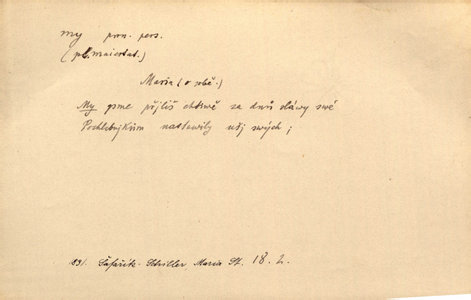 my pron. pers.
(pl. maiestat.)
Maria (o sobě.)
My gsme přjliš chtiwě za dnů sláwy swé
Pochlebnjkům nastawily ušj swých;
831. Šafařík-Schiller Maria St. 18. 2.